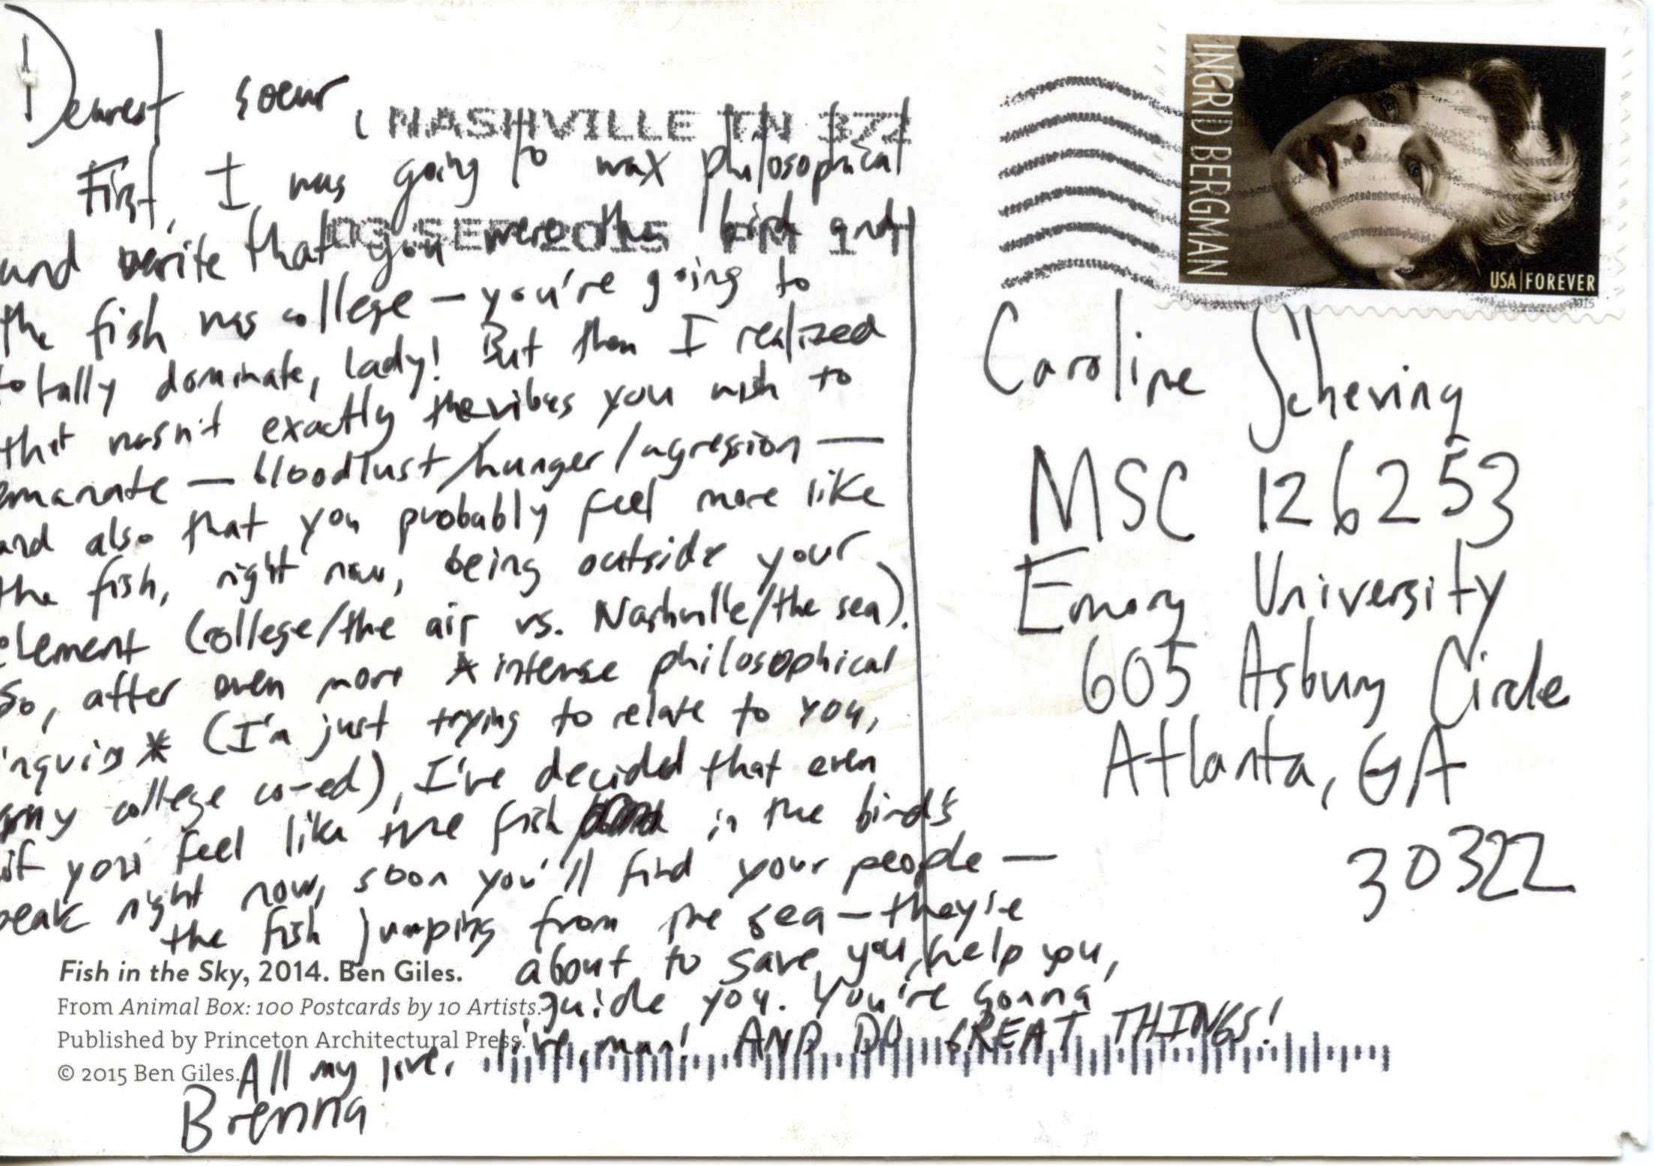 Dearest soeur
NASHVILLE TN 372
First, I was going to wax philosophical
03 SEP 2015 PM 1
and write that you were the bird and
the fish was college — you're going to
totally dominate, lady! But then I realized
that wasn't exactly the vibes you wish to
emanate — bloodlust/hunger/agression —
and also that you probably feel more like
the fish, right now, being outside your
element (college/the air vs. Nashville/the sea).
So, after even more intense philosophical
inquiry * (I'm just trying to relate to you,
my college co-ed), I've decided that even
if you feel like the fish in the bird's
beak right now, soon you'll find your people —
the fish jumping from the sea — they're
about to save you, help you,
guide you. You're gonna
live, man! AND DO GREAT THINGS!
All my love,
Brenna
Fish in the Sky, 2014. Ben Giles.
From Animal Box: 100 Postcards by 10 Artists.
Published by Princeton Architectural Press.
© 2015 Ben Giles.
INGRID BERGMAN
USA|FOREVER
2015
Caroline Schering
MSC 126253
Emory University
605 Asbury Circle
Atlanta, GA
30322